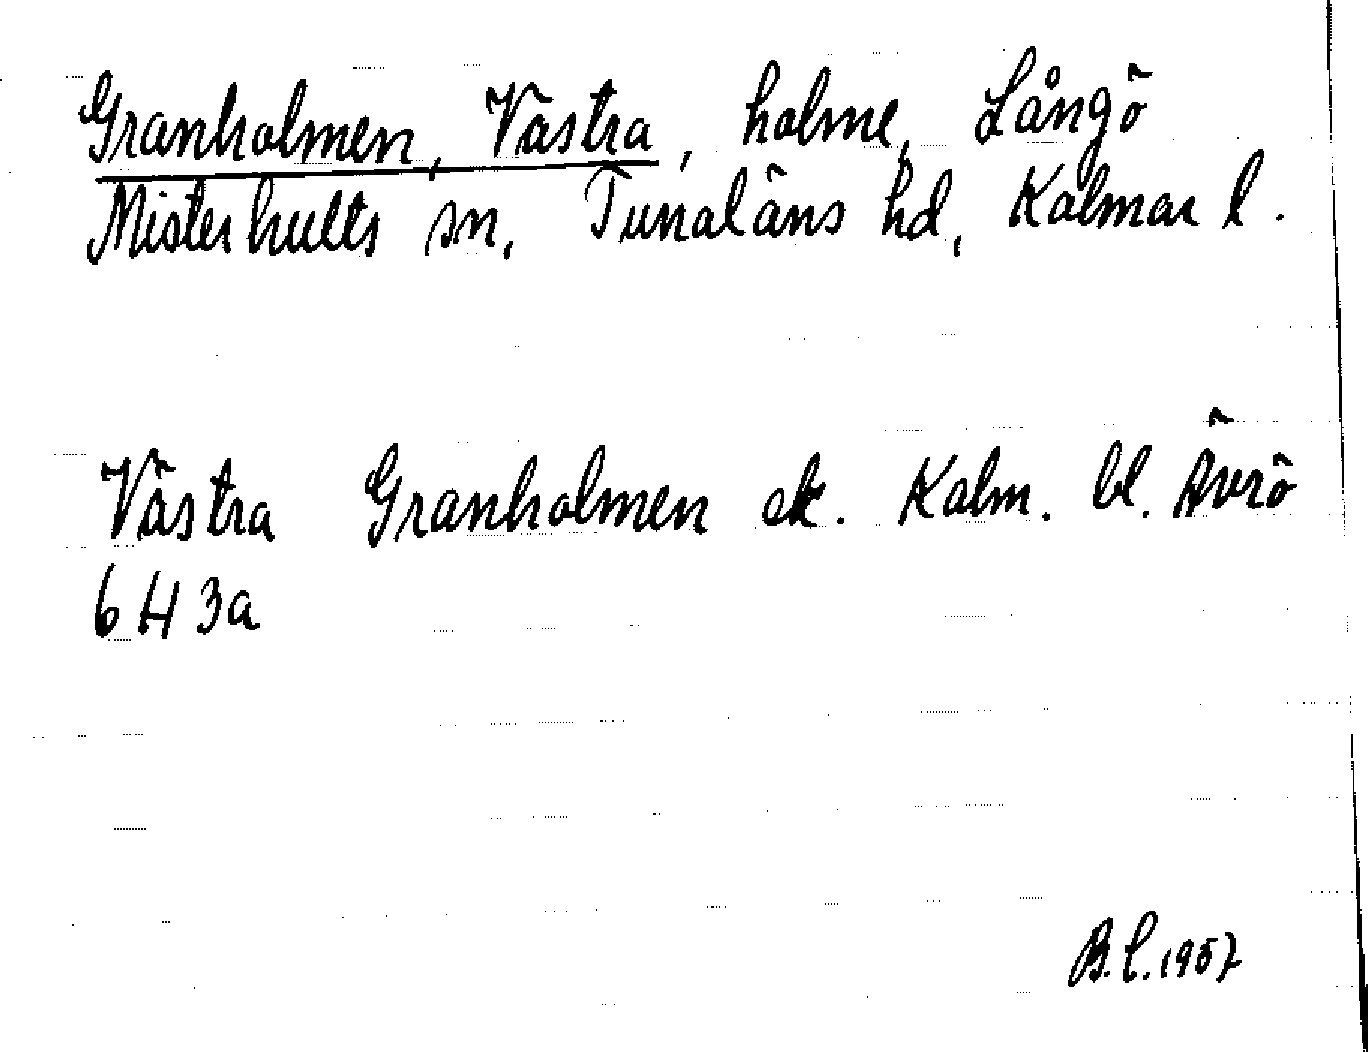 Granholmen, Västra, holme, Långö
Misterhults sn, Tunaläns hd, Kalmar l.
Västra Granholmen ek. Kalm. bl. Ävrö
6 H 3a
B.L. 1957